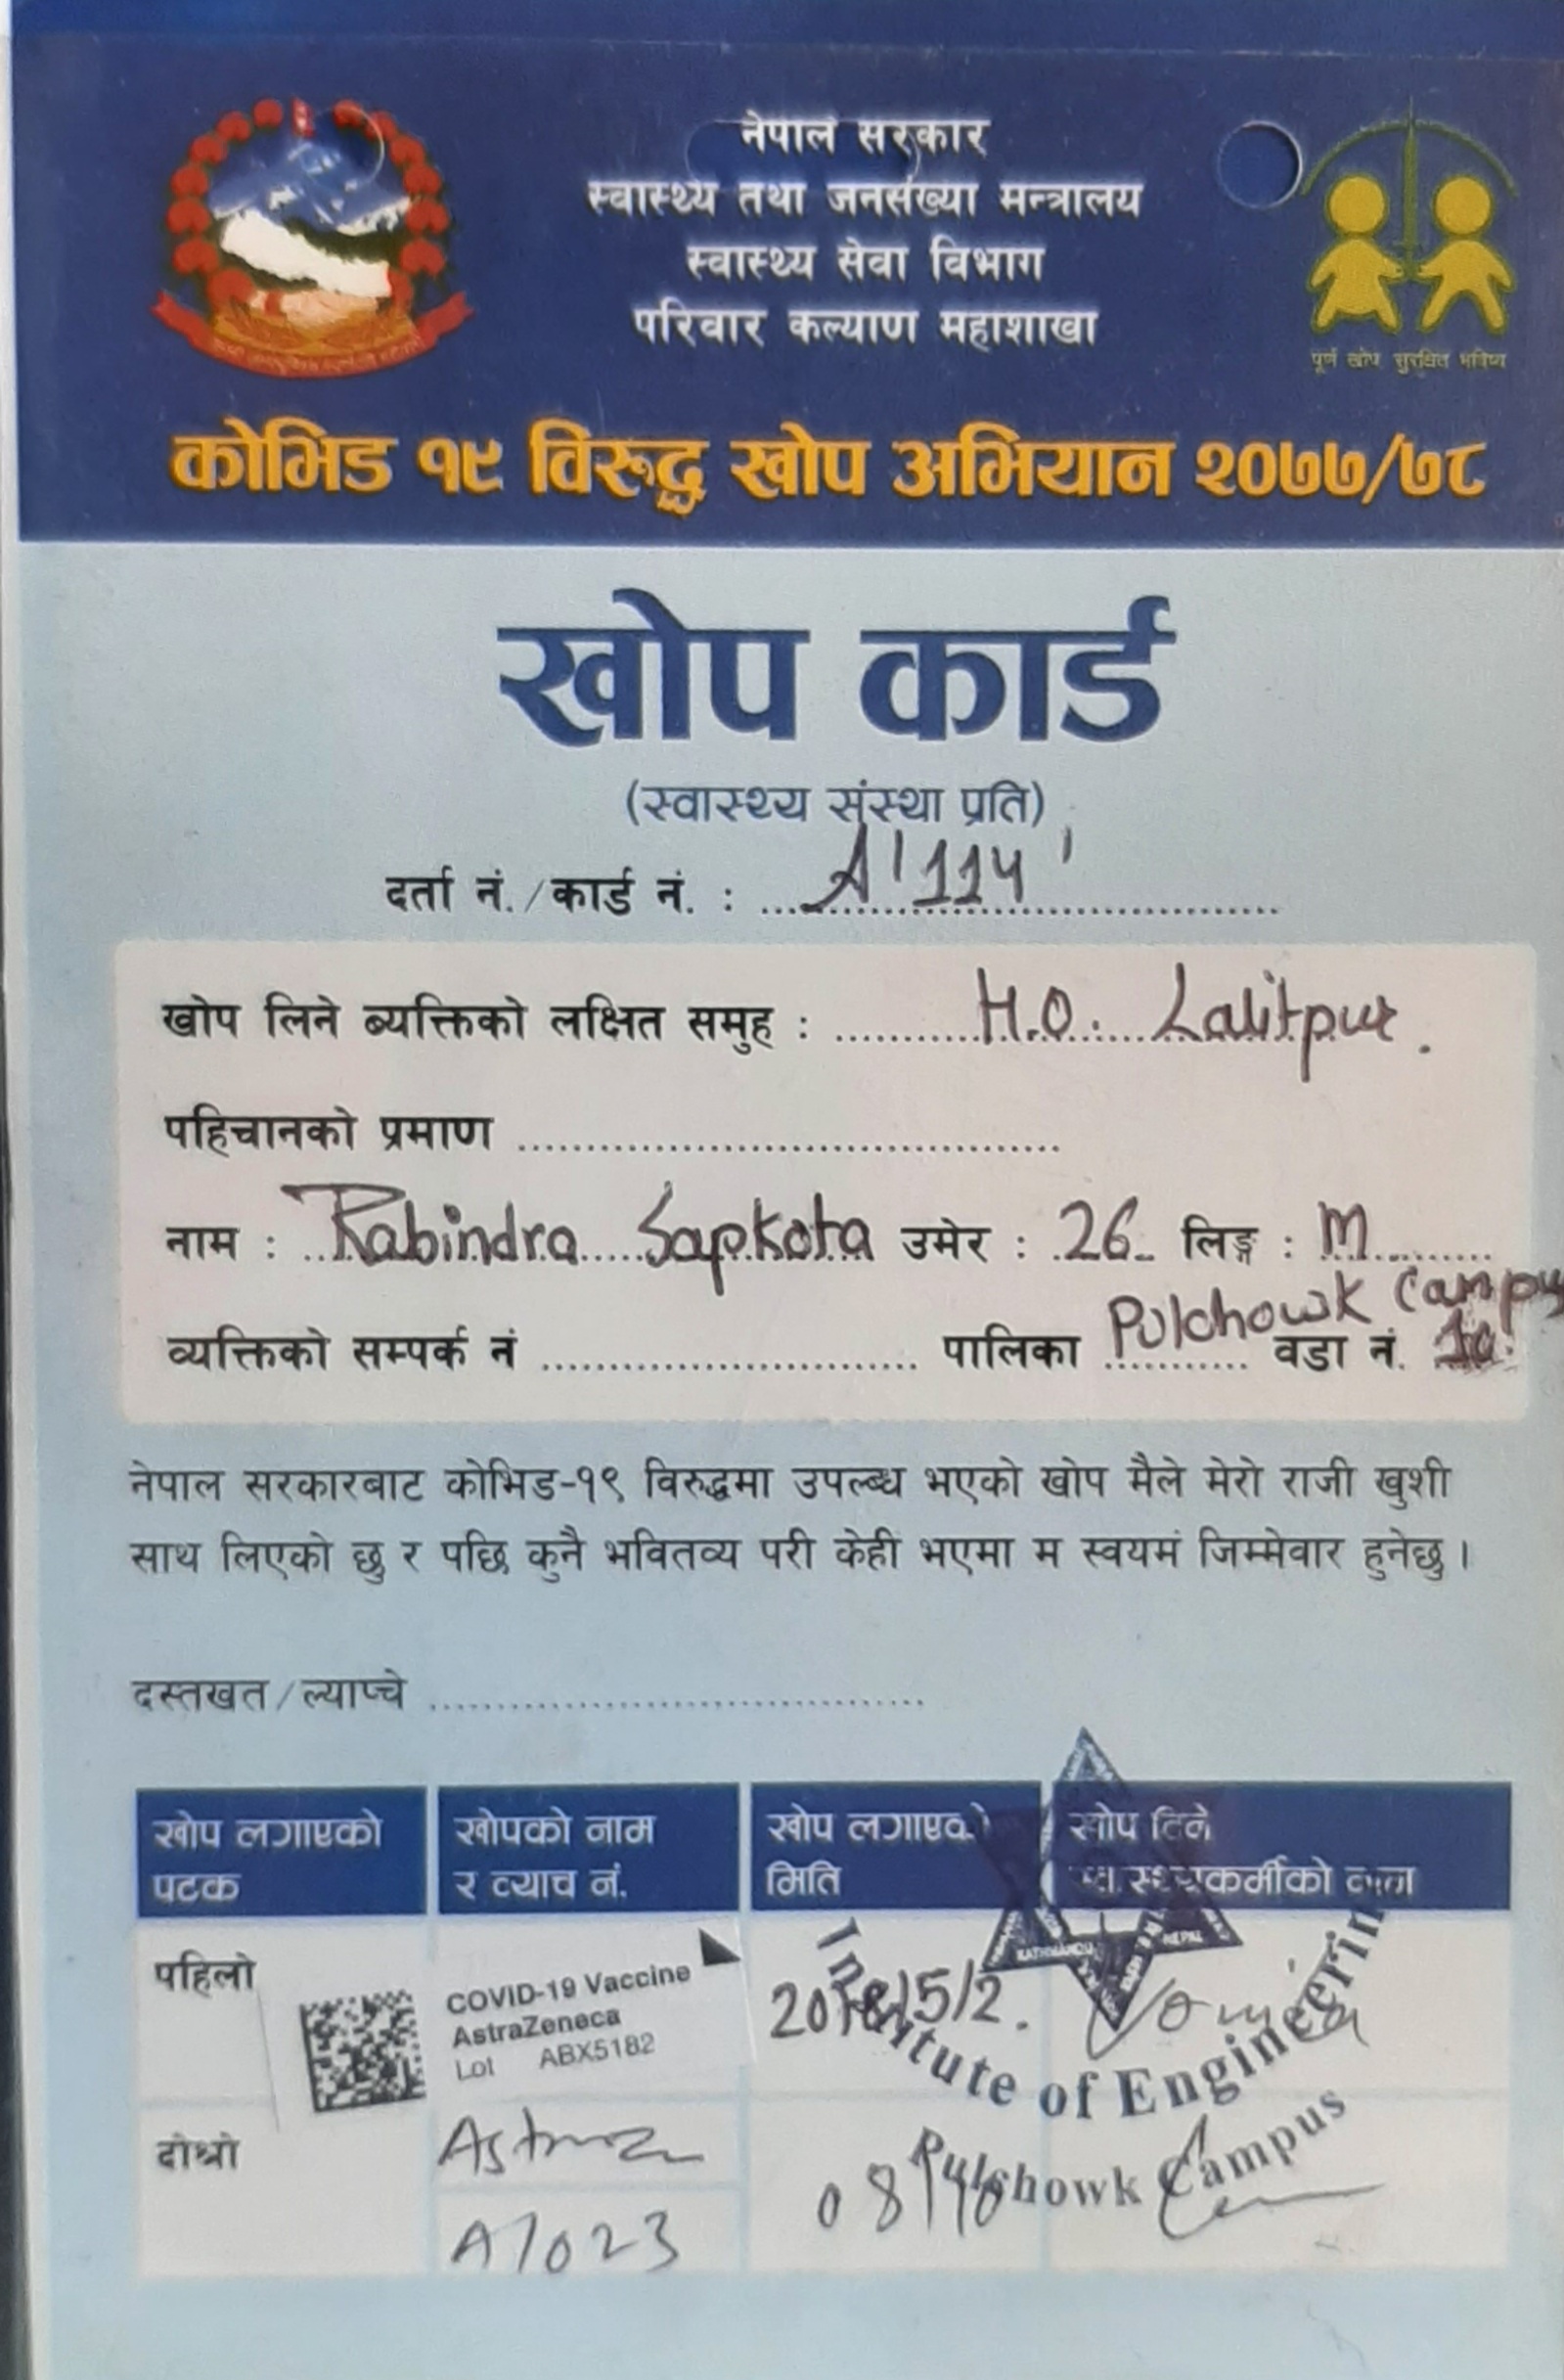 नेपाल सरकार
स्वास्थ्य तथा जनसंख्या मन्त्रालय
स्वास्थ्य सेवा विभाग
परिवार कल्याण महाशाखा
पूर्ण खोप सुरक्षित भविष्य
कोभिड १९ विरुद्ध खोप अभियान २०७७/७८
खोप कार्ड
(स्वास्थ्य संस्था प्रति)
दर्ता नं./कार्ड नं. : A'114'
खोप लिने ब्यक्तिको लक्षित समुह : H.O. Lalitpur.
पहिचानको प्रमाण
नाम : Rabindra Sapkota उमेर : 26 लिङ्ग : M
व्यक्तिको सम्पर्क नं पालिका Pulchowk Campus वडा नं. 10
नेपाल सरकारबाट कोभिड-१९ विरुद्धमा उपल्ब्ध भएको खोप मैले मेरो राजी खुशी
साथ लिएको छु र पछि कुनै भवितव्य परी केही भएमा म स्वयमं जिम्मेवार हुनेछु ।
दस्तखत/ल्याप्चे
खोप लगाएको पटक
खोपको नाम र व्याच नं.
खोप लगाएको मिति
खोप दिने स्वास्थ्यकर्मीको नाम
पहिलो
COVID-19 Vaccine
AstraZeneca
Lot ABX5182
2078/5/2.
KATHMANDU NEPAL
Institute of Engineering
Pulchowk Campus
दोश्रो
A1023